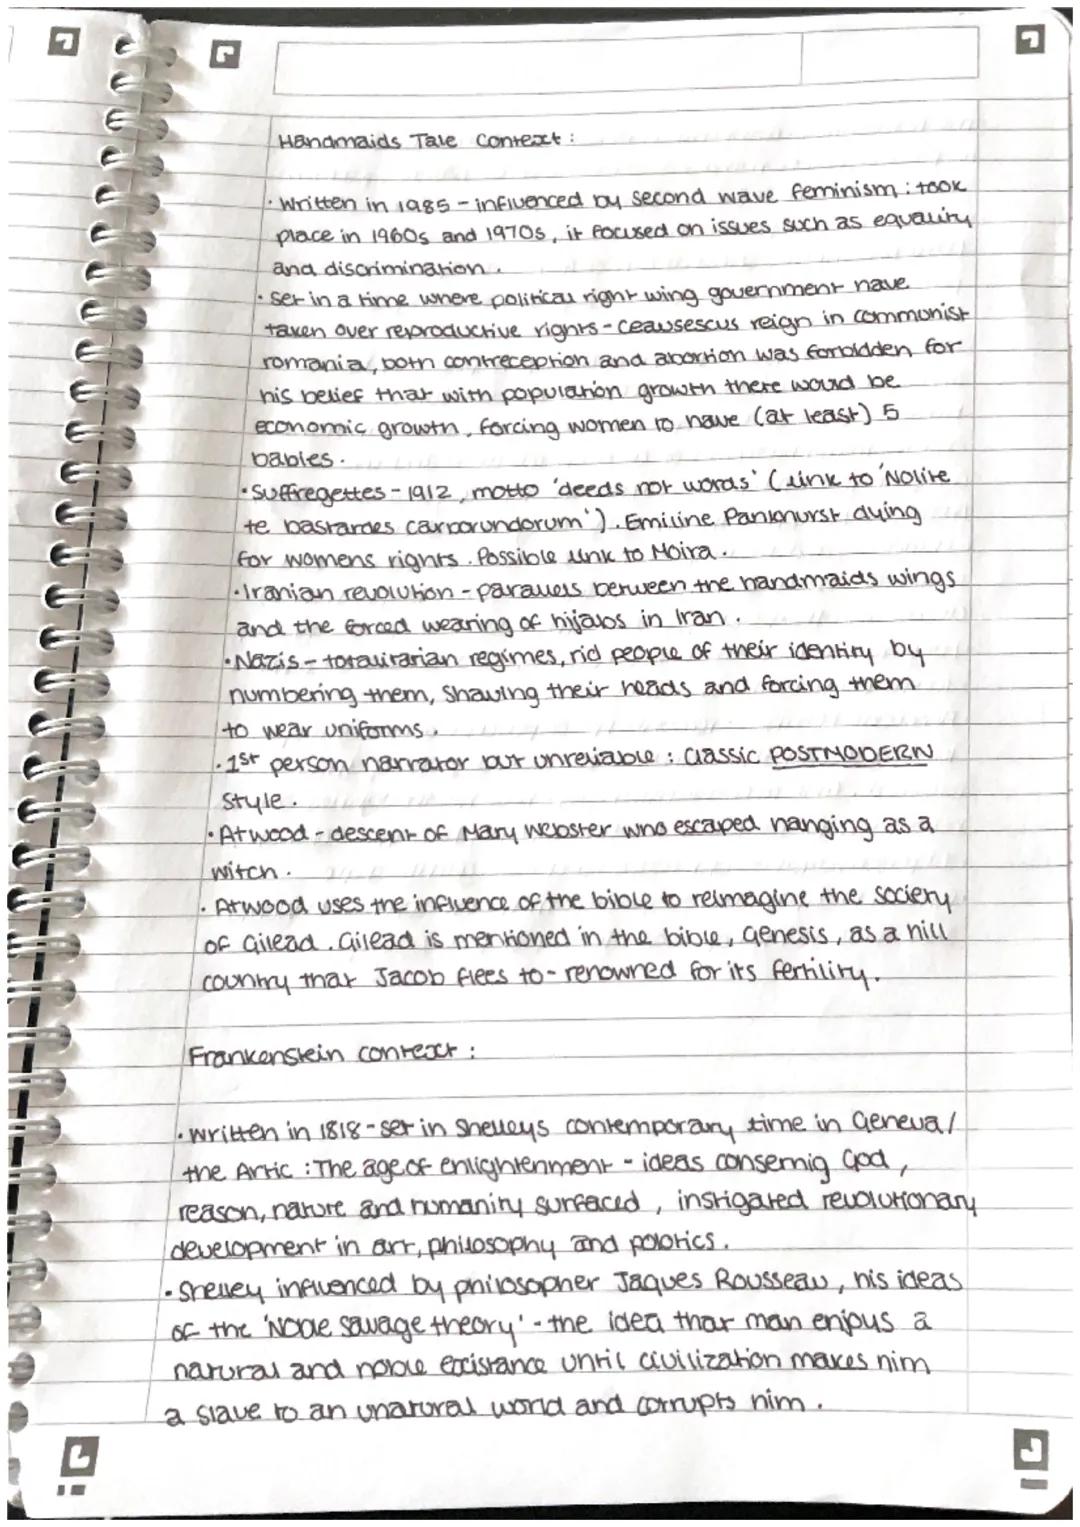 Handmaids Tale Context :
• Written in 1985 - influenced by second wave feminism : took
place in 1960s and 1970s, it focused on issues such as equality
and discrimination.
• Set in a time where political right wing government have
taken over reproductive rights - Ceausescus reign in communist
romania, both contreception and abortion was forbidden, for
his belief that with population growth there would be
economic growth, forcing women to have (at least) 5
babies.
• Suffregettes - 1912, motto 'deeds not words' (link to 'Nolite
te bastardes carborundorum'). Emiline Pankhurst dying
for womens rights. Possible link to Moira.
• Iranian revolution - parallels between the handmaids wings
and the forced wearing of hijabs in Iran.
• Nazis - totalitarian regimes, rid people of their identity by
numbering them, shaving their heads and forcing them
to wear uniforms.
• 1st person narrator but unreliable : Classic POSTMODERN
style.
• Atwood - descent of Mary Webster who escaped hanging as a
witch.
• Atwood uses the influence of the bible to reimagine the society
of Gilead. Gilead is mentioned in the bible, Genesis, as a hill
country that Jacob flees to - renowned for its fertility.
Frankenstein context :
• Written in 1818 - set in Shelleys contemporary time in Geneva/
the Artic : The age of enlightenment - ideas consernig God,
reason, nature and humanity surfaced, instigated revolutionary
development in art, philosophy and polotics.
• Shelley influenced by philosopher Jaques Rousseau, his ideas
of the 'Noble Savage theory' - the idea that man enjoys a
natural and noble existance until civilization makes him
a slave to an unatural world and corrupts him.